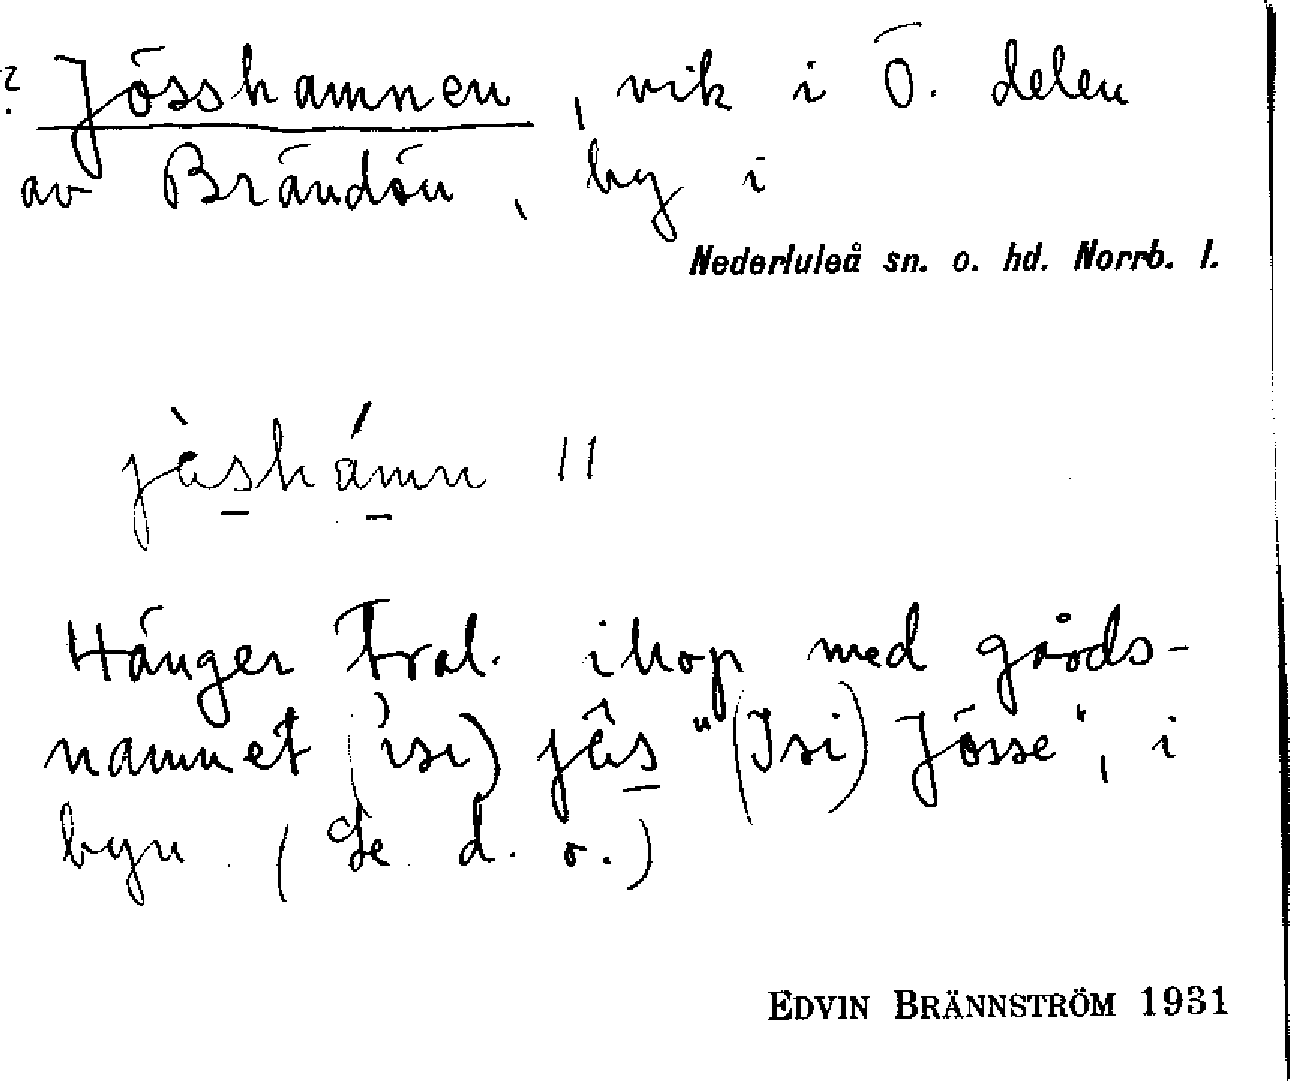 ? Jösshamnen, vik i Ö. delen
av Brändön, by i
Nederluleå sn. o. hd. Norrb. l.
jàshámn 11
Hänger trol. ihop med gårds-
namnet (isi) jâs "(Isi) Jösse", i
byn. (Se d. o.)
EDVIN BRÄNNSTRÖM 1931